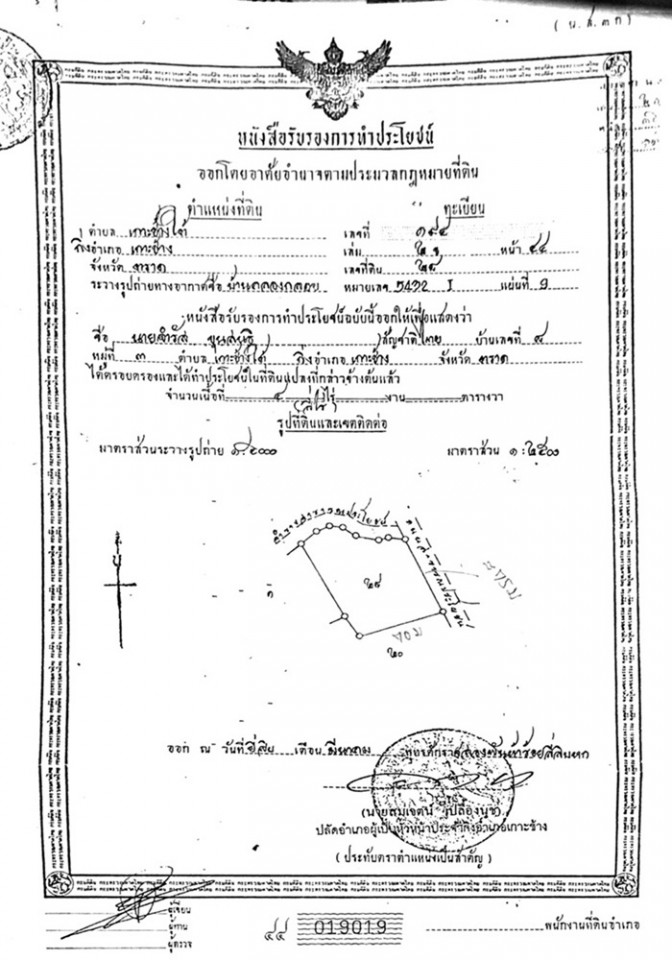 ( น.ส.๓ก )
หนังสือรับรองการทำประโยชน์
ออกโดยอาศัยอำนาจตามประมวลกฎหมายที่ดิน
ตำแหน่งที่ดิน ทะเบียน
ตำบล เกาะช้างใต้ เลขที่ ๑๙๔
กิ่งอำเภอ เกาะช้าง เล่ม หน้า ๔๔
จังหวัด ตราด เลขที่ดิน ๒๙
ระวางรูปถ่ายทางอากาศชื่อ บ้านคลองกลอย หมายเลข 5432 I แผ่นที่ 9
หนังสือรับรองการทำประโยชน์ฉบับนี้ออกให้เพื่อแสดงว่า
ชื่อ นาย สัญชาติ ไทย บ้านเลขที่ ๔
หมู่ที่ ๓ ตำบล เกาะช้างใต้ กิ่งอำเภอ เกาะช้าง จังหวัด ตราด
ได้ครอบครองและได้ทำประโยชน์ในที่ดินแปลงที่กล่าวข้างต้นแล้ว
จำนวนเนื้อที่ ๔ ไร่ งาน ตารางวา
(สี่ไร่)
รูปที่ดินและเขตติดต่อ
มาตราส่วนระวางรูปถ่าย ๑:๕๐๐๐ มาตราส่วน ๑:๒๕๐๐
ลำรางสาธารณประโยชน์
ถนนสาธารณประโยชน์
น
๒๙
๒๐
ออก ณ วันที่ ยี่สิบ เดือน มีนาคม พุทธศักราช สองพันห้าร้อยสี่สิบหก
ปลัดอำเภอผู้เป็นหัวหน้าประจำกิ่งอำเภอเกาะช้าง
( ประทับตราตำแหน่งเป็นสำคัญ )
ผู้เขียน
ผู้ทาน
ผู้ตรวจ
๔๔ 019019 พนักงานที่ดินอำเภอ